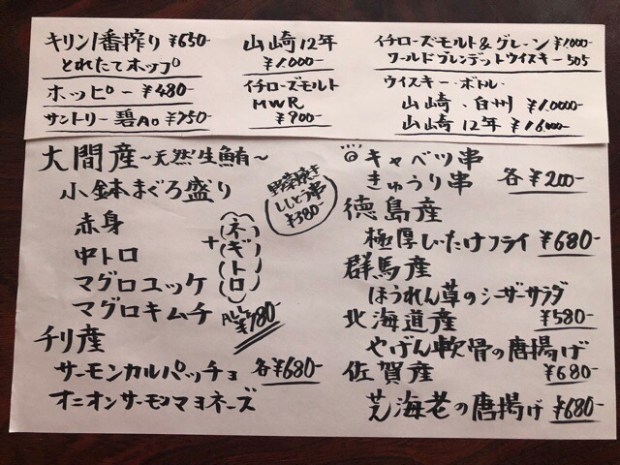 キリン1番搾り ¥650-
とれたてホップ
ホッピー ¥480-
サントリー碧Ao ¥750-
山崎12年
¥1.000-
イチローズモルト
MWR
¥900-
イチローズモルト&グレーン ¥1.000-
ワールドブレンデットウイスキー505
ウイスキー・ボトル・
山崎・白州 ¥10.000-
山崎12年 ¥16.000-
大間産~天然生鮪~
小鉢まぐろ盛り
赤身
中トロ
マグロユッケ
マグロキムチ
+
(ネギトロ)
ALL
¥780-
野菜焼き
ししとう串
¥380-
チリ産
サーモンカルパッチョ 各¥680-
オニオンサーモンマヨネーズ
キャベツ串
きゅうり串 各¥200-
徳島産
極厚しいたけフライ ¥680-
群馬産
ほうれん草のシーザーサラダ
¥580-
北海道産
やげん軟骨の唐揚げ
¥680-
佐賀産
芝海老の唐揚げ ¥680-